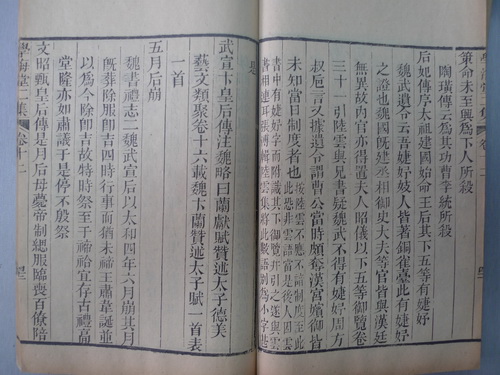 策命未至興為下人所殺
陶璜傳云為其功曹李統所殺
后妃傳序太祖建國始命王后其下五等有婕妤
魏武遺令云吾婕妤妓人皆著銅雀臺此有婕妤
之證也魏國既建丞相御史大夫等官皆與漢廷
無異故內官亦得置夫人昭儀以下五等御覽
三十一引陸雲與兄書疑魏武不得有婕妤周方
叔卮言又據遺令謂曹公當時頗參漢宮嬪御皆
未知當日制度者也
武宣卞皇后傳注魏略曰蘭獻賦贊述太子德美
藝文類聚卷十六載魏卞蘭贊述太子賦一首表
一首
五月后崩
魏書禮志二魏武宣后以太和四年六月崩其月
既葬除服即吉四時行事而猶未禘王肅韋誕並
以為今除即吉故特時祭至于禘祫宜存古禮高
堂隆亦如肅議于是停不殷祭
文昭甄皇后傳是月后母薨帝制緦服臨喪百僚陪
學海堂二集
卷十二